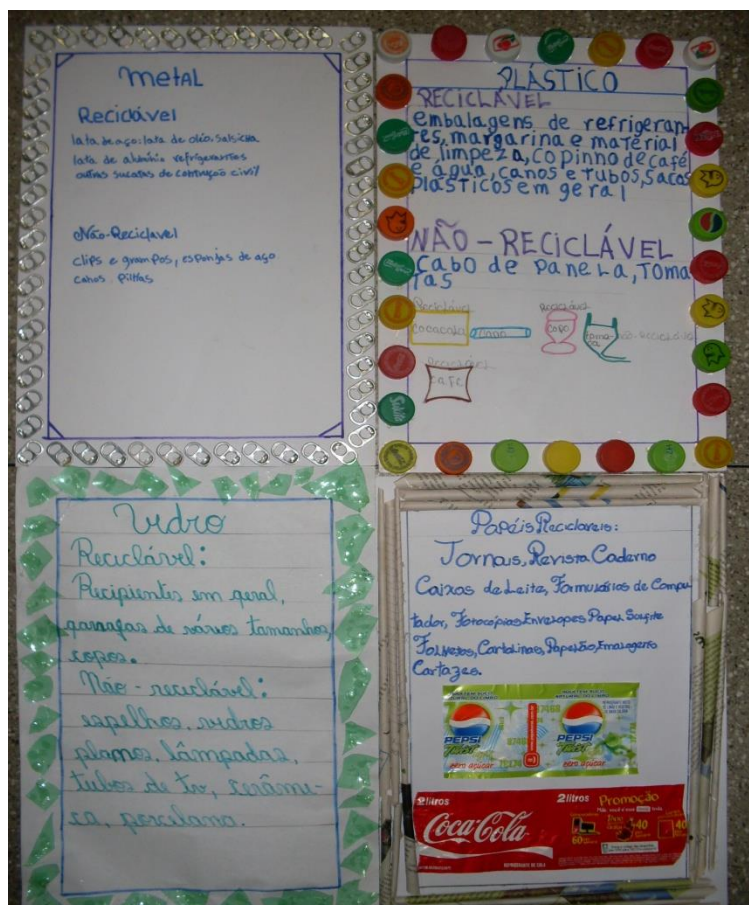 metAL
Reciclável
lata de aço: lata de oléo, salsicha
lata de alumínio refrigerantes
outras sucatas de construção civil
Não-Reciclavel
clips e grampos, esponjas de aço
canos pilhas
PLÁSTICO
RECICLÁVEL
embalagens de refrigeran-
tes, margarina e material
de limpeza, copinho de café
e água, canos e tubos, sacos
plásticos em geral
NÃO-RECICLÁVEL
Cabo de panela, toma
tas
Reciclável
cocacola
cano
Reciclável
copo
toma
da
não-Reciclável
Reciclável
cafe
Vidro
Reciclável:
Recipientes em geral,
garrafas de vários tamanhos,
copos.
Não-reciclável:
espelhos, vidros
planos, lâmpadas,
tubos de tv, cerâmi-
ca, porcelana.
Papéis Reciclaveis:
Jornais, Revista Caderno
Caixas de Leite, Formulários de Compu
tador, Fotocópias Envelopes Papel Sulfite
Folhetos, Cartolinas, Papelão, Emalagens
Cartazes.
PEPSI
Twist
zero açúcar
PEPSI
Twist
zero açúcar
2 litros
Coca-Cola
2 litros
Promoção
60
+40
40
REFRIGERANTE DE COLA